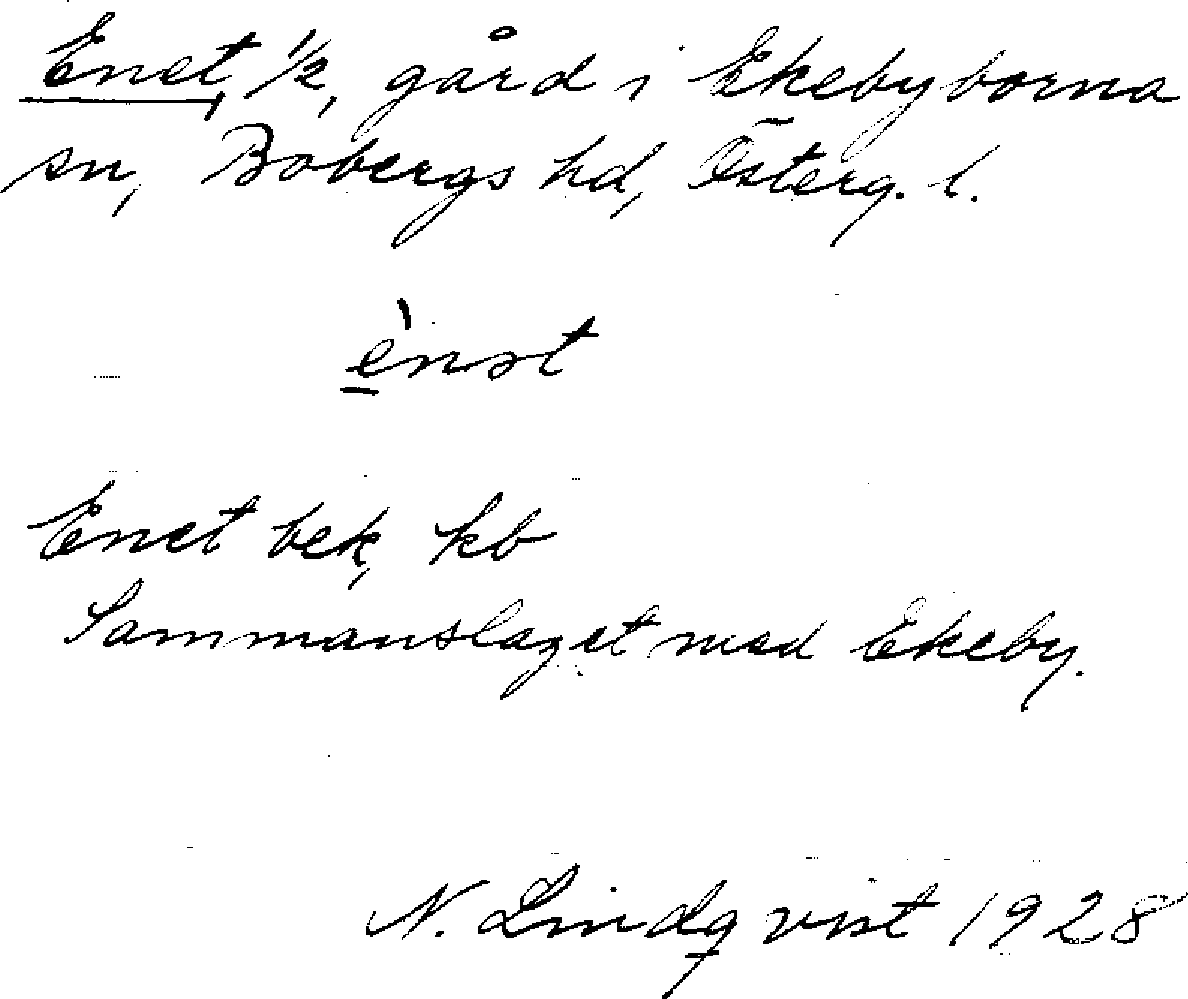 Enet, 1/2, gård i Ekebyborna
sn, Bobergs hd, Österg. l.
è̱nət
Enet bek, kb
Sammanslaget med Ekeby.
N. Lindqvist 1928